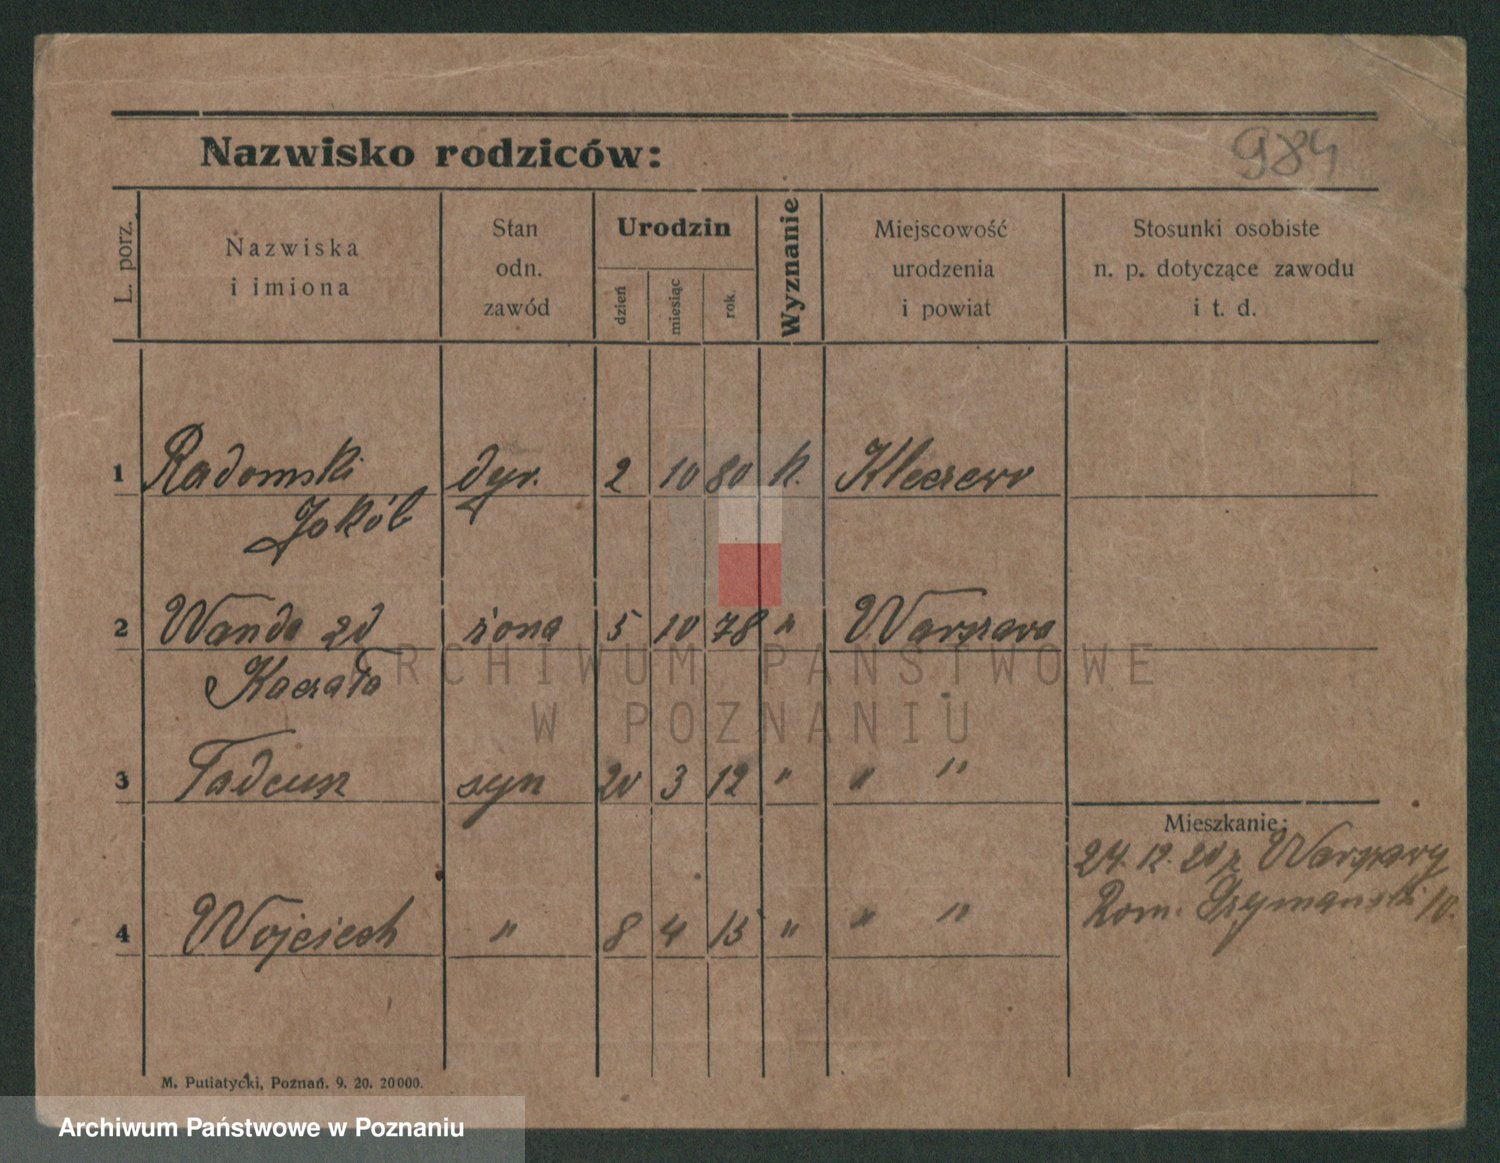 Nazwisko rodziców:
984
L. porz.
Nazwiska
i imiona
Stan
odn.
zawód
Urodzin
dzień
miesiąc
rok.
Wyznanie
Miejscowość
urodzenia
i powiat
Stosunki osobiste
n. p. dotyczące zawodu
i t. d.
1 Radomski dyr. 2 10 80 k. Kleczewo
Jakób
2 Wanda żona 5 10 78 " Warszawa
ARCHIWUM PAŃSTWOWE
W POZNANIU
3 Tadeusz syn 20 3 12 " " "
Mieszkanie:
24. 12. 20 z Warszawy
Rom. Szymański 10.
4 Wojciech " 8 4 15 " " "
M. Putiatycki, Poznań. 9. 20. 20000.
Archiwum Państwowe w Poznaniu